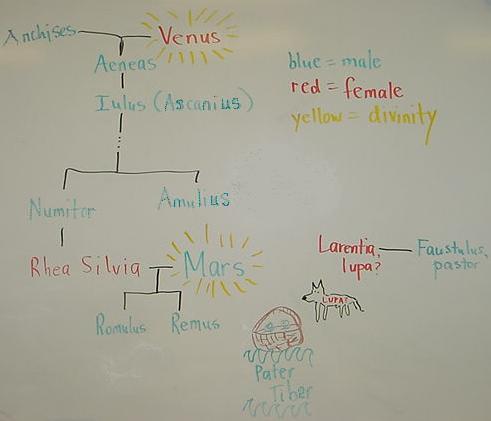 Anchises
Venus
Aeneas
Iulus (Ascanius)
blue = male
red = female
yellow = divinity
Numitor
Amulius
Rhea Silvia
Mars
Larentia,
lupa?
Faustulus,
pastor
Romulus
Remus
LUPA?
Pater
Tiber